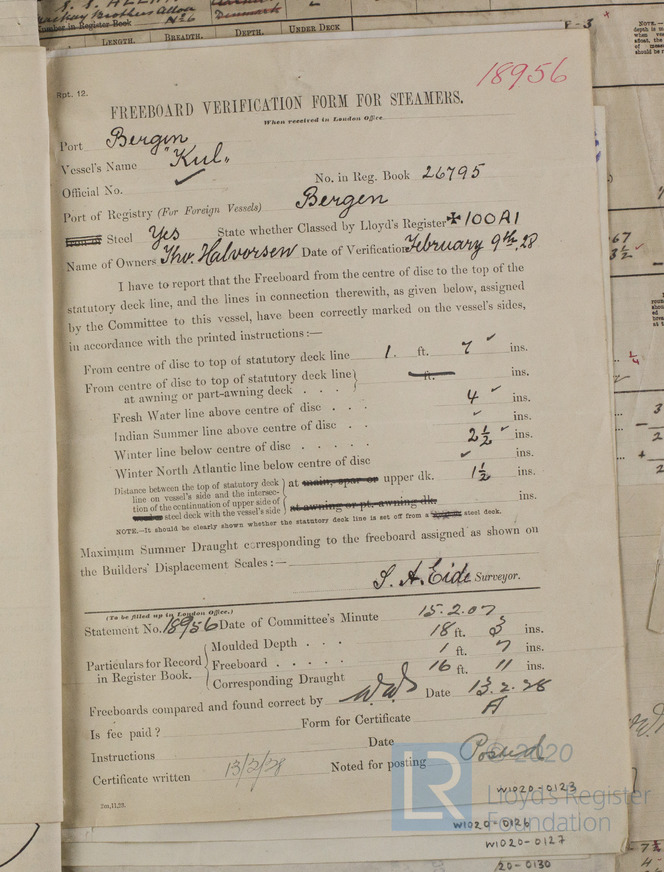 Number in Register Book
No 6
Denmark
LENGTH. BREADTH. DEPTH. UNDER DECK
Rpt. 12.
18956
FREEBOARD VERIFICATION FORM FOR STEAMERS.
When received in London Office
Port Bergen
Vessel's Name "Kul"
Official No. No. in Reg. Book 26795
Port of Registry (For Foreign Vessels) Bergen
Steel Yes State whether Classed by Lloyd's Register ✠ 100A1
Name of Owners Thv. Halvorsen Date of Verification February 9th 28
I have to report that the Freeboard from the centre of disc to the top of the
statutory deck line, and the lines in connection therewith, as given below, assigned
by the Committee to this vessel, have been correctly marked on the vessel's sides,
in accordance with the printed instructions:—
From centre of disc to top of statutory deck line 1. ft. 7 ✓ ins.
From centre of disc to top of statutory deck line
at awning or part-awning deck . . . ft. ins.
Fresh Water line above centre of disc . . . 4 ✓ ins.
Indian Summer line above centre of disc . . ✓ ins.
Winter line below centre of disc . . . . . 2½ ✓ ins.
Winter North Atlantic line below centre of disc ✓ ins.
Distance between the top of statutory deck
line on vessel's side and the intersec-
tion of the continuation of upper side of
steel deck with the vessel's side
at main, spar or upper dk. 1½ ins.
at awning or pt. awning dk. ins.
NOTE.—It should be clearly shown whether the statutory deck line is set off from a steel deck.
Maximum Summer Draught corresponding to the freeboard assigned as shown on
the Builders' Displacement Scales:—
S. A. Eide Surveyor.
(To be filled up in London Office.)
Statement No. 18956 Date of Committee's Minute 15.2.07
Particulars for Record
in Register Book.
Moulded Depth . . . 18 ft. 3 ins.
Freeboard . . . . . 1 ft. 7 ins.
Corresponding Draught 16 ft. 11 ins.
Freeboards compared and found correct by Date 13.2.28
Is fee paid? Form for Certificate A
Instructions Date
Certificate written 13/2/28 Noted for posting Posted
2m,11,25.
© 2020
LR
Lloyd's Register
Foundation
W1020-0123
W1020-0126
W1020-0127
20-0130